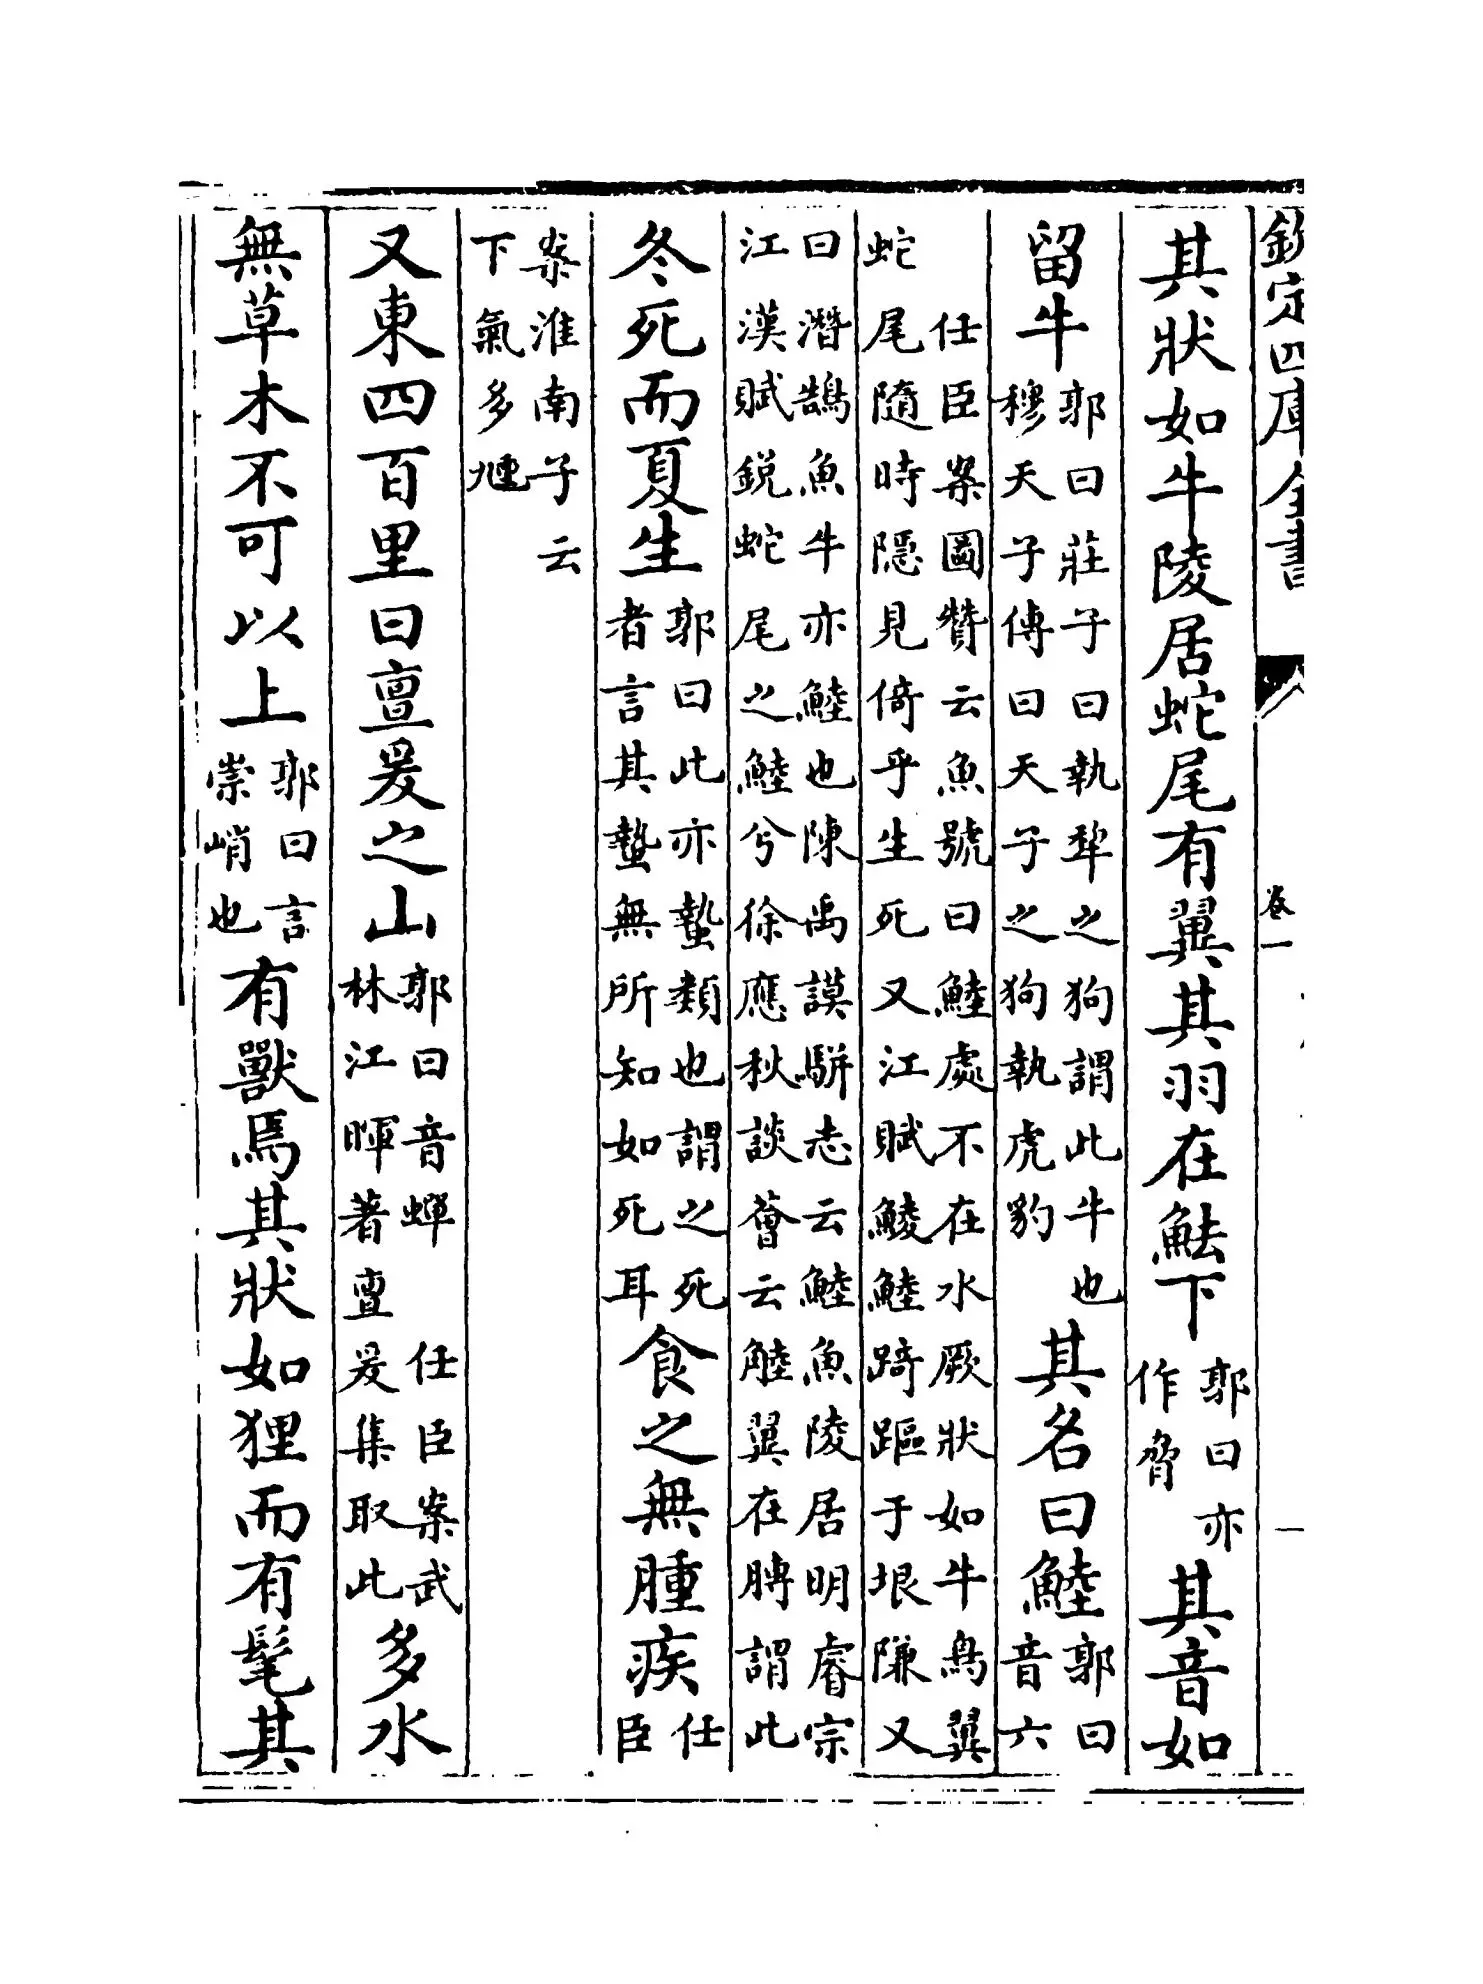 欽定四庫全書
卷一
其狀如牛陵居蛇尾有翼其羽在魼下郭曰亦作脅其音如
留牛郭曰莊子曰執犂之狗謂此牛也穆天子傳曰天子之狗執虎豹其名曰鯥郭曰音六
蛇尾任臣案圖贊云魚號曰鯥處不在水厥狀如牛鳥翼隨時隱見倚乎生死又江賦鯪鯥踦䟣于垠隒又
曰潛鵠魚牛亦鯥也陳禹謨駢志云鯥魚陵居明睿宗江漢賦銳蛇尾之鯥兮徐應秋談薈云鯥翼在膊謂此
冬死而夏生郭曰此亦蟄類也謂之死者言其蟄無所知如死耳食之無腫疾任臣
案淮南子云下氣多尰
又東四百里曰亶爰之山郭曰音蟬 任臣案武林江暉著亶爰集取此多水
無草木不可以上郭曰言崇峭也有獸焉其狀如狸而有髦其